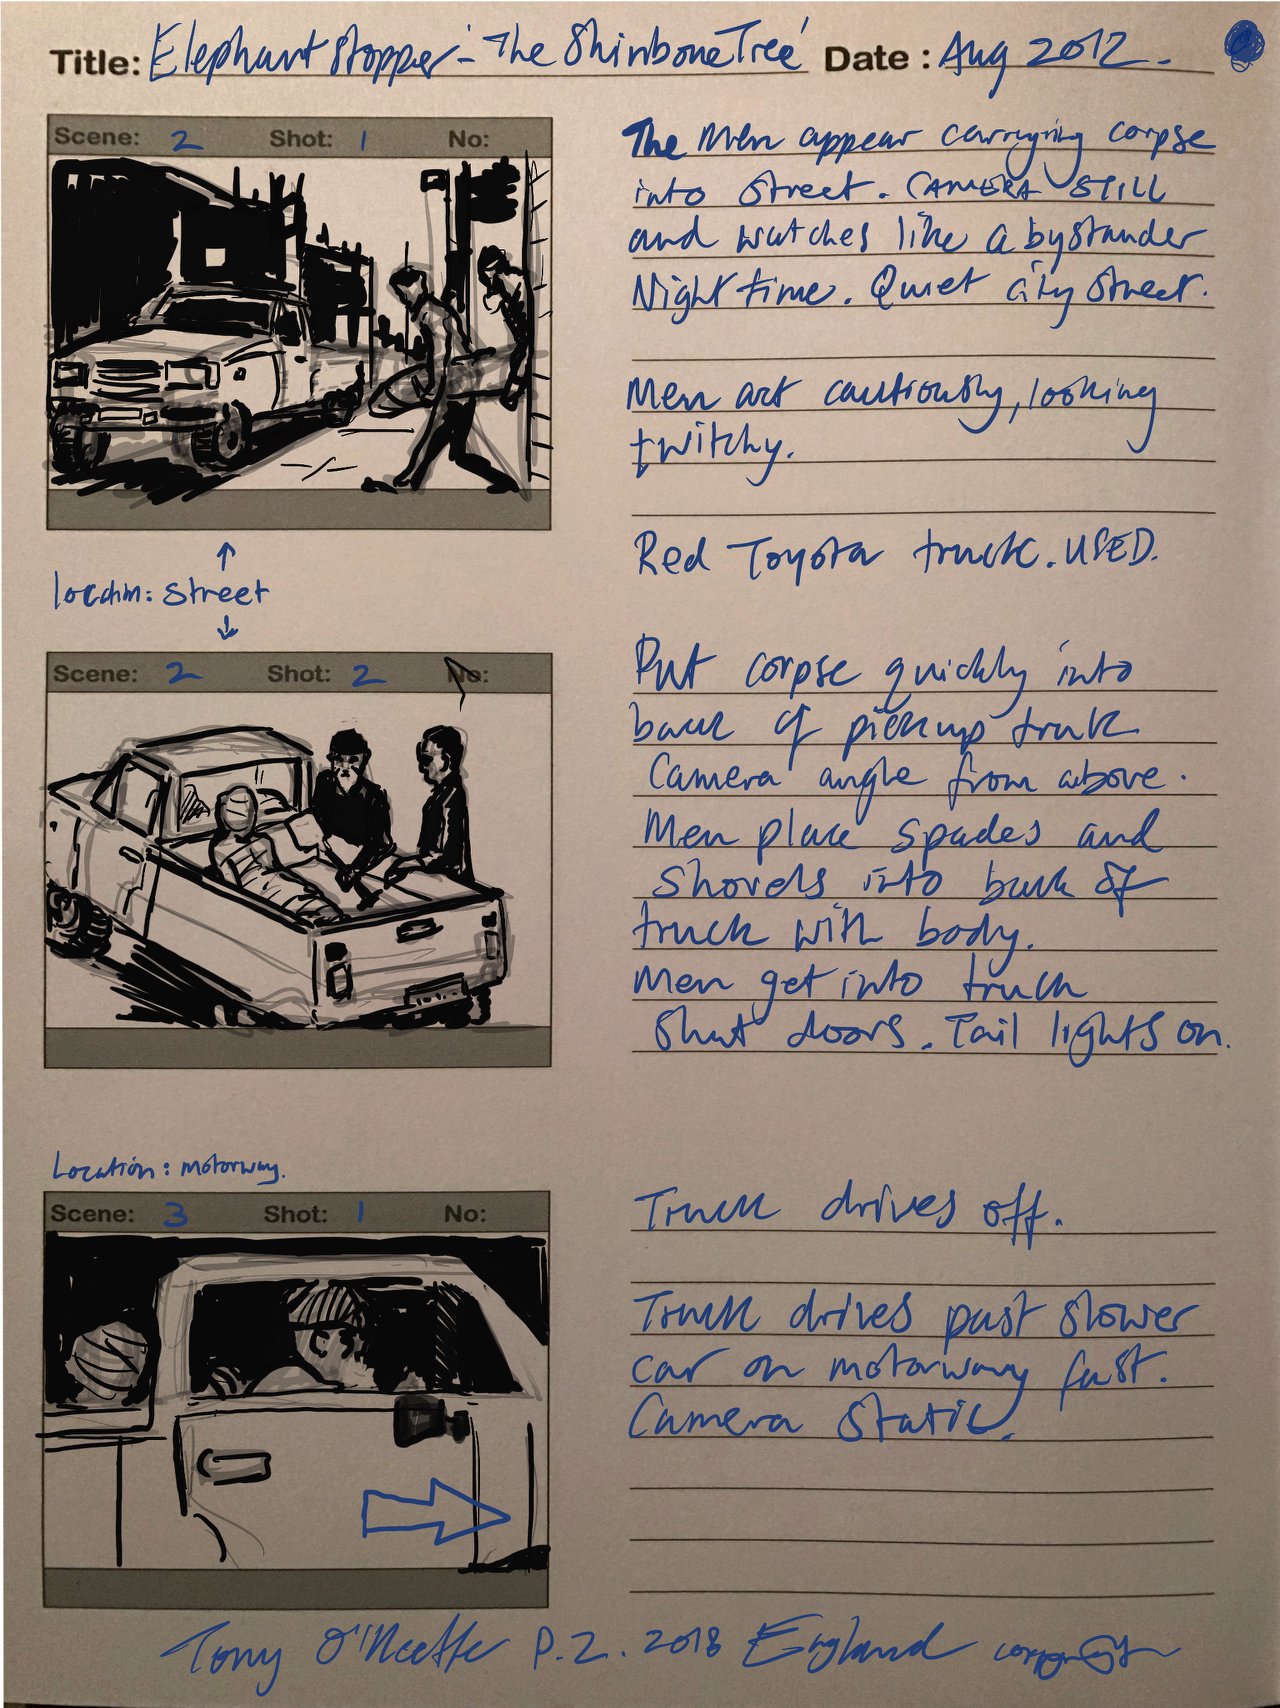 Title: Elephant Stopper - 'The Shinbone Tree' Date: Aug 2012.
Scene: 2 Shot: 1 No:
The Men appear carrying corpse
into street. CAMERA STILL
and watches like a bystander
Night time. Quiet city street.
Men act cautiously, looking
twitchy.
Red Toyota truck. USED.
Location: street
Scene: 2 Shot: 2 No:
Put corpse quickly into
back of pickup truck
Camera angle from above.
Men place spades and
shovels into back of
truck with body.
Men get into truck
shut doors. Tail lights on.
Location: motorway.
Scene: 3 Shot: 1 No:
Truck drives off.
Truck drives past slower
car on motorway fast.
Camera static.
Tony P.2. 2018 England